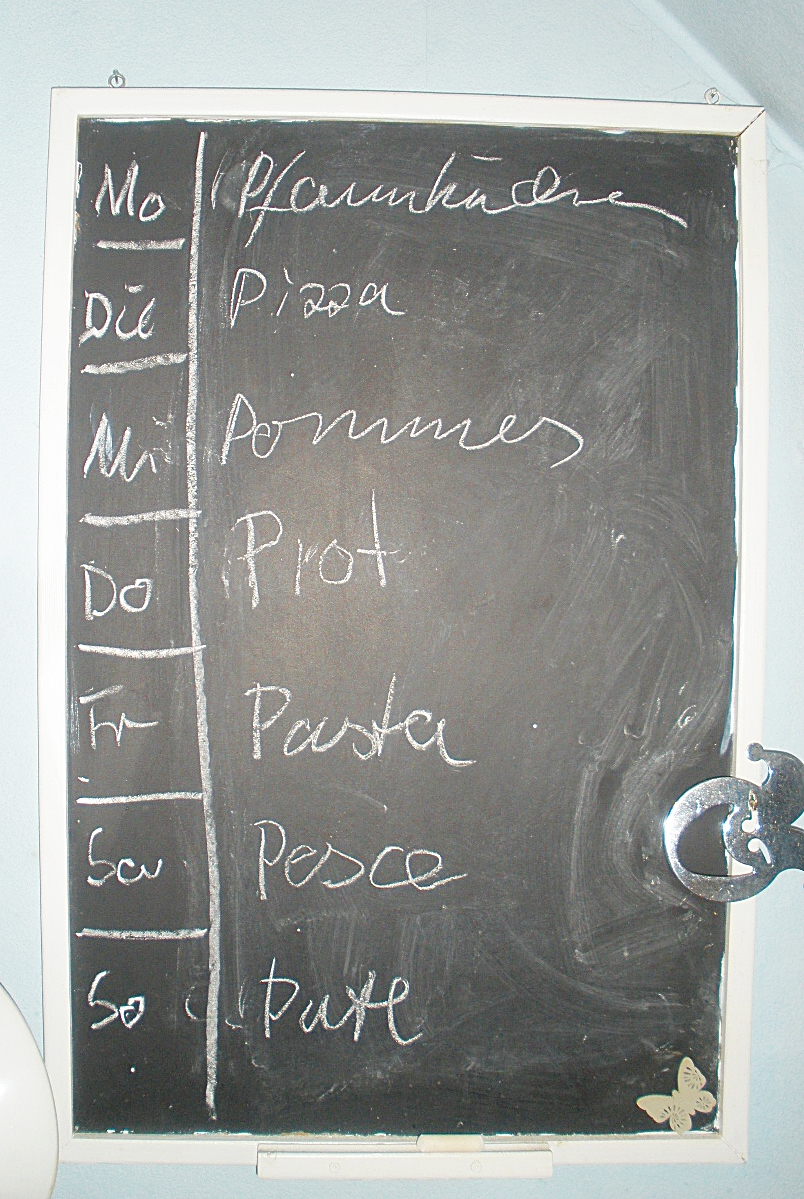 Mo Pfannkuchen
Die Pizza
Mi Pommes
Do Prot
Fr Pasta
Sa Pesce
So Pute